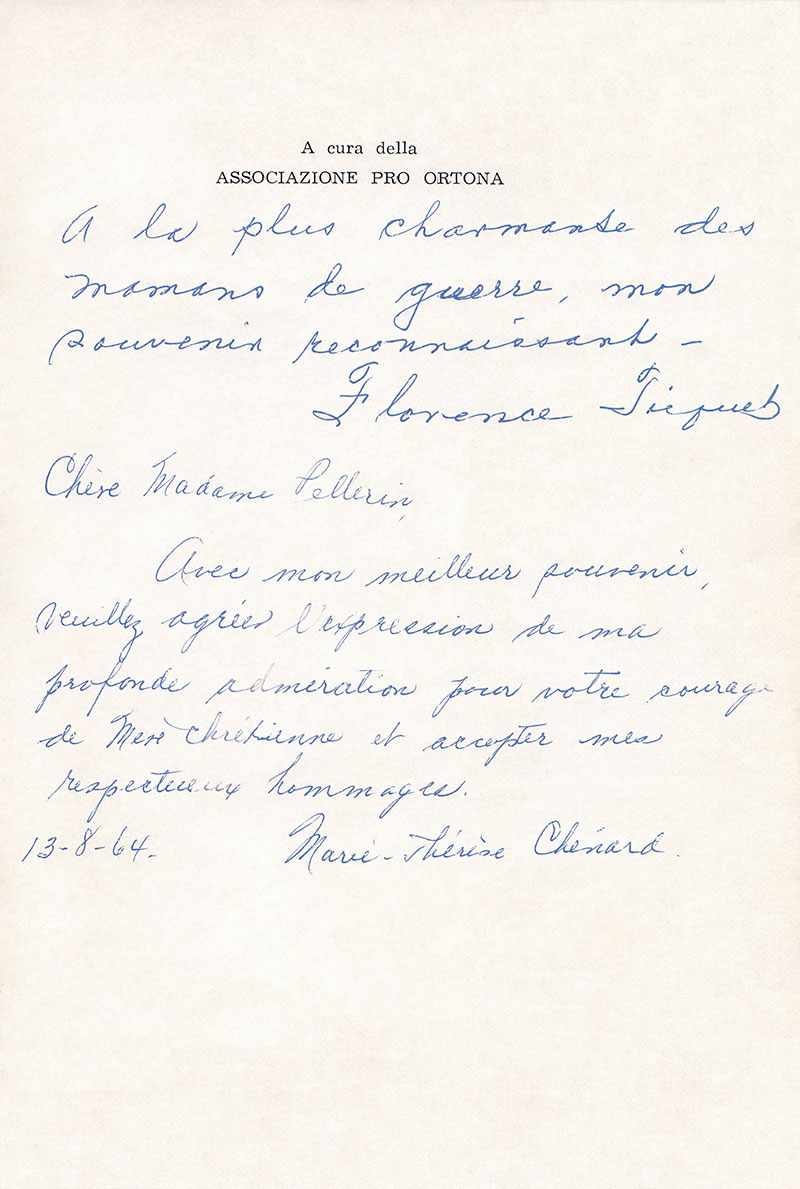 A cura della
ASSOCIAZIONE PRO ORTONA
A la plus charmante des
mamans de guerre, mon
souvenir reconnaissant –
Florence Tiquet
Chère Madame Pellerin,
Avec mon meilleur souvenir,
veuillez agréer l'expression de ma
profonde admiration pour votre courage
de Mère chrétienne et accepter mes
respectueux hommages.
13-8-64. Marie-Thérèse Chénard.